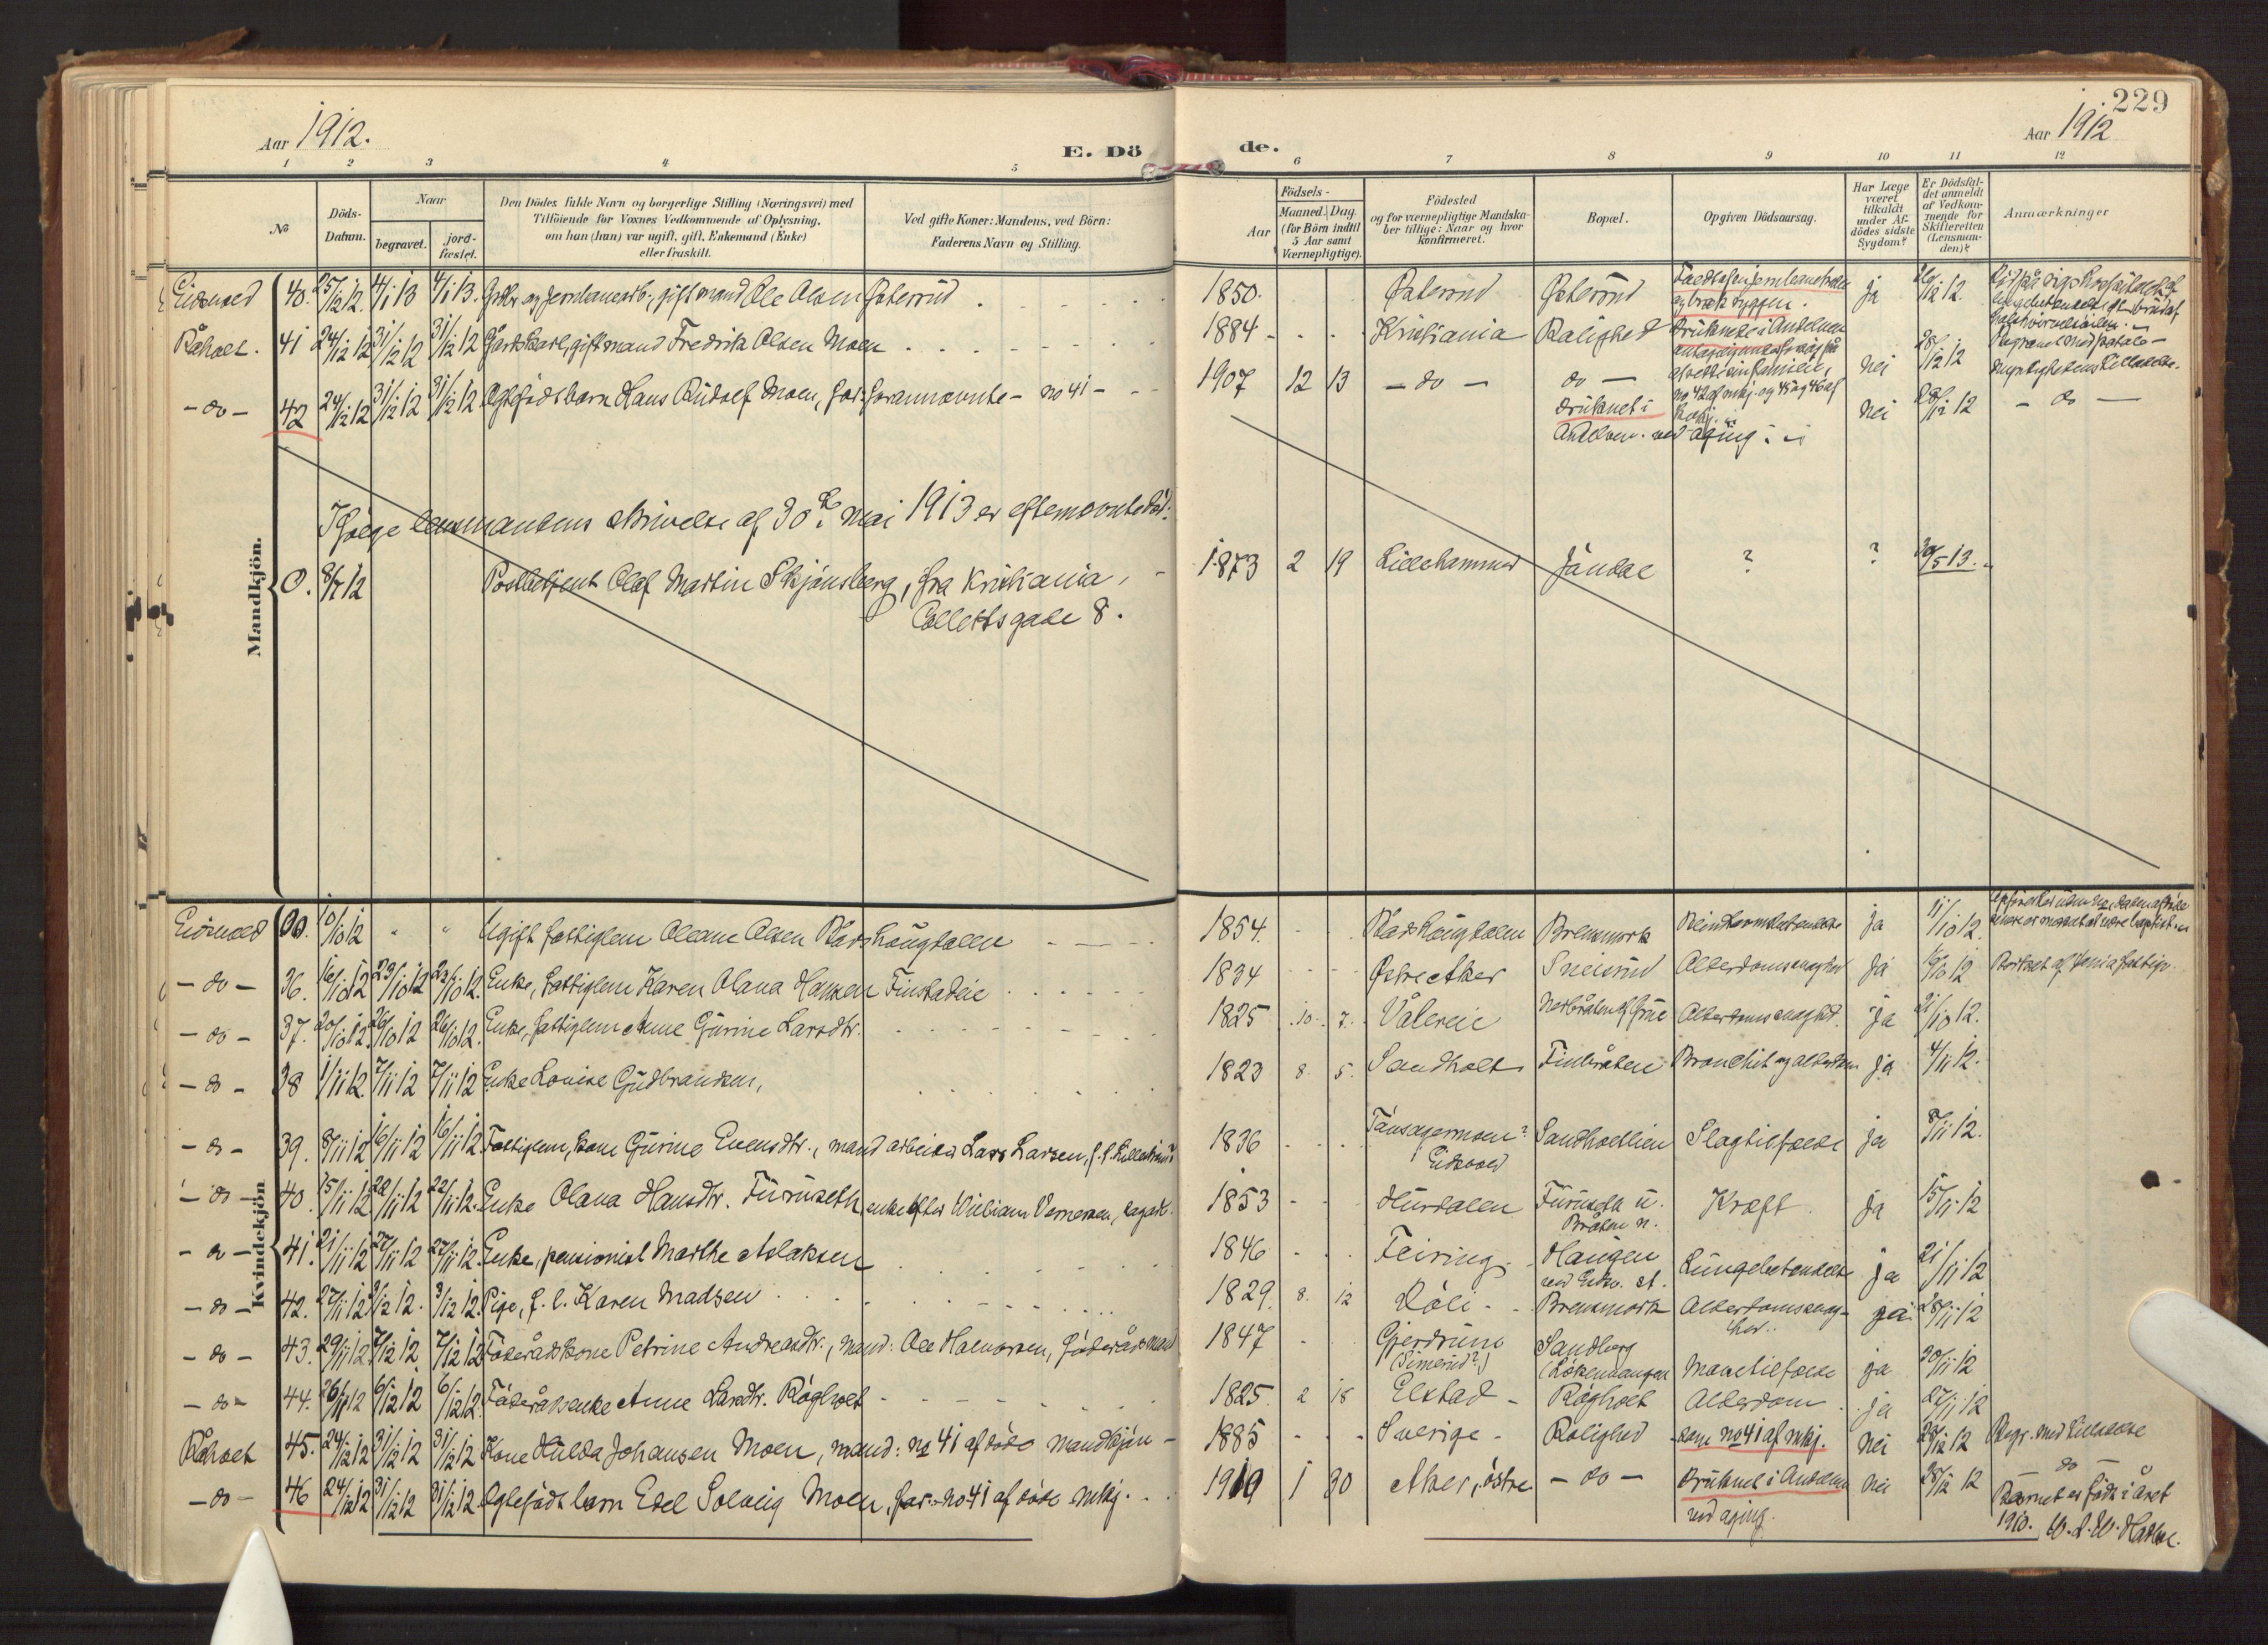 229
Aar 1912.
Aar 1912
E. Dö
de.
1 2 3 4 5 6 7 8 9 10 11 12
No
Döds-
Datum.
Naar
begravet.
jord-
fæstet.
Den Dödes fulde Navn og borgerlige Stilling (Næringsvei) med
Tilföiende for Voxnes Vedkommende af Oplysning,
om han (hun) var ugift, gift, Enkemand (Enke)
eller fraskilt.
Ved gifte Koner: Mandens, ved Börn:
Faderens Navn og Stilling.
Födsels-
Aar
Maaned. Dag.
(for Börn indtil
5 Aar samt
Værnepligtige).
Födested
og for værnepligtige Mandska-
ber tillige: Naar og hvor
konfirmeret.
Bopæl.
Opgiven Dödsaarsag.
Har Læge
været
tilkaldt
under Af-
dödes sidste
Sygdom?
Er Dödsfal-
det anmeldt
af Vedkom-
mende for
Skifteretten
(Lensman-
den)?
Anmærkninger
Mandkjön.
Eidsvold 40. 25/12 12. 4/1 13 4/1 13. gift mand Ole Olsen Østerud 1850. Østerud Østerud ja 12.
og bræk ryggen.
Råholt. 41 24/12 12 31/12 12 31/12 12 Gårdskarl, gift mand Fredrik Olsen Moen 1884 Kristiania Rolighed Druknet i Andelven nei 28/12 12
no 42 af mkj. og 45 og 46 af
- do - 42 24/12 12 31/12 12 31/12 12 Ægtefødt barn Hans Rudolf Moen, far: forannævnte no 41 - 1907 12 13 - do - do - nei 28/12 12 - do -
druknet i
Andelven ved aging
Ifølge lensmandens skrivelse af 30te mai 1913 er efternævnte død:
0. 8/7 12 Postbetjent Olaf Martin Skjønsberg, fra Kristiania, 1873 2 19 Lillehammer Jøndal ? ? 30/5 13.
Collettsgade 8.
Kvindekjön
Eidsvold 10/10 12 " " Ugift fattiglem Oleane Olsen Bårdshaugdalen 1854. Bårdshaugdalen Brensmork ja 11/10 12.
- do - 36. 16/10 12 23/10 12 23/10 12. Enke, fattiglem Karen Olava Hansen Finstadeie 1834 Østre Aker Sneisrud Alderdomssvaghed ja 16/10 12
- do - 37. 20/10 12. 26/10 12 26/10 12. Enke, fattiglem Anne Gurine Larsdtr. 1825 10. 7. Vålereie Alderdomssvaghed. ja 21/10 12.
- do - 38 1/11 12. 7/11 12 7/11 12 Enke Louise Gudbrandsen, 1823 8. 5. Sandholt Finbråten Bronchit og alderdom ja 4/11 12.
- do - 39. 8/11 12 16/11 12 16/11 12 Fattiglem, kone Gurine Evensdtr., mand arbeider Lars Larsen, 1836 Tønsagermoen? Sandholtlien Slagtilfælde ja 8/11 12.
Eidsvold
- do - 40. 15/11 12 22/11 12 22/11 12. Enke Olava Hansdtr. Furuseth, enke efter William 1853 Hurdalen Furuseth u. Kræft ja 15/11 12
Bråten n.
- do - 41. 21/11 12 27/11 12 27/11 12. Enke, pensionist Marthe Aslaksen 1846 Feiring. Haugen Lungebetændelse ja 21/11 12
ved Eidsv. st.
- do - 42. 27/11 12 3/12 12. 3/12 12. Pige, f. l. Karen Madsen 1829. 8. 12 Brensmork Alderdomssvag- ja 28/11 12
hed.
- do - 43. 29/11 12 7/12 12 7/12 12 Føderådskone Petrine Andreasdtr., mand: Ole Halvorsen, føderådsmand 1847 Gjerdrum Sandberg Mavetilfælde ja 30/11 12
(Simerud?)
- do - 44. 26/11 12 6/12 12 6/12 12. Føderådsenke Anne Larsdtr. Røgholt 1825. 2 18 Elstad - Røgholt Alderdom ja 27/11 12
Råholt 45. 24/12 12 31/12 12 31/12 12 Kone Hulda Johansen Moen, mand: no 41 af døde mandkjøn - 1885 Sverige - Rolighed som no 41 af mkj. nei 28/12 12
- do - 46 24/12 12 31/12 12 31/12 12 Ægtefødt barn Edel Solveig Moen, far: no 41 af døde mkj. 1910 1 30 Aker, østre - do - druknet i Andelven nei 28/12 12 - do -
ved aging.
Barnet er født i året
1910.